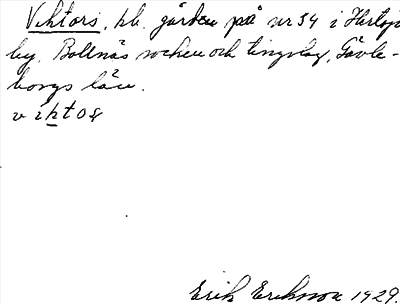 Viktors, kb. gården på nr 54 i Hertsj
by, Bollnäs socken och tingslag, Gävle-
borgs län.
viktos
Erik Eriksson 1929.